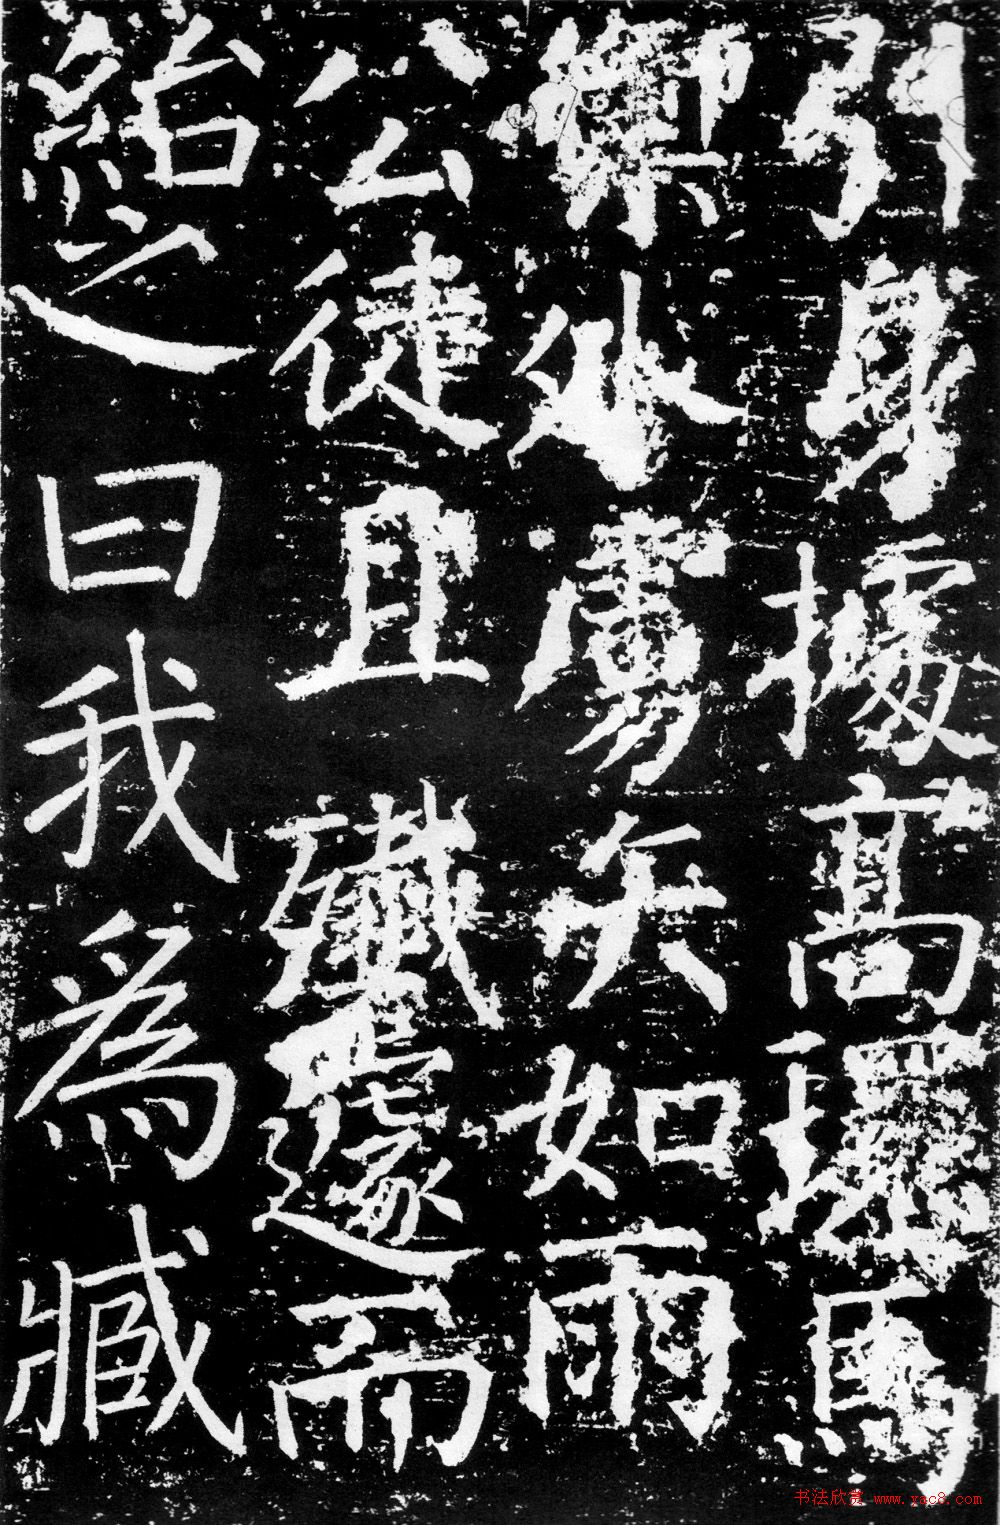 引身據高環馬
禦外虜矢如雨
公徒且殲遽而
紿之曰我為臧
书法欣赏 www.yac8.com